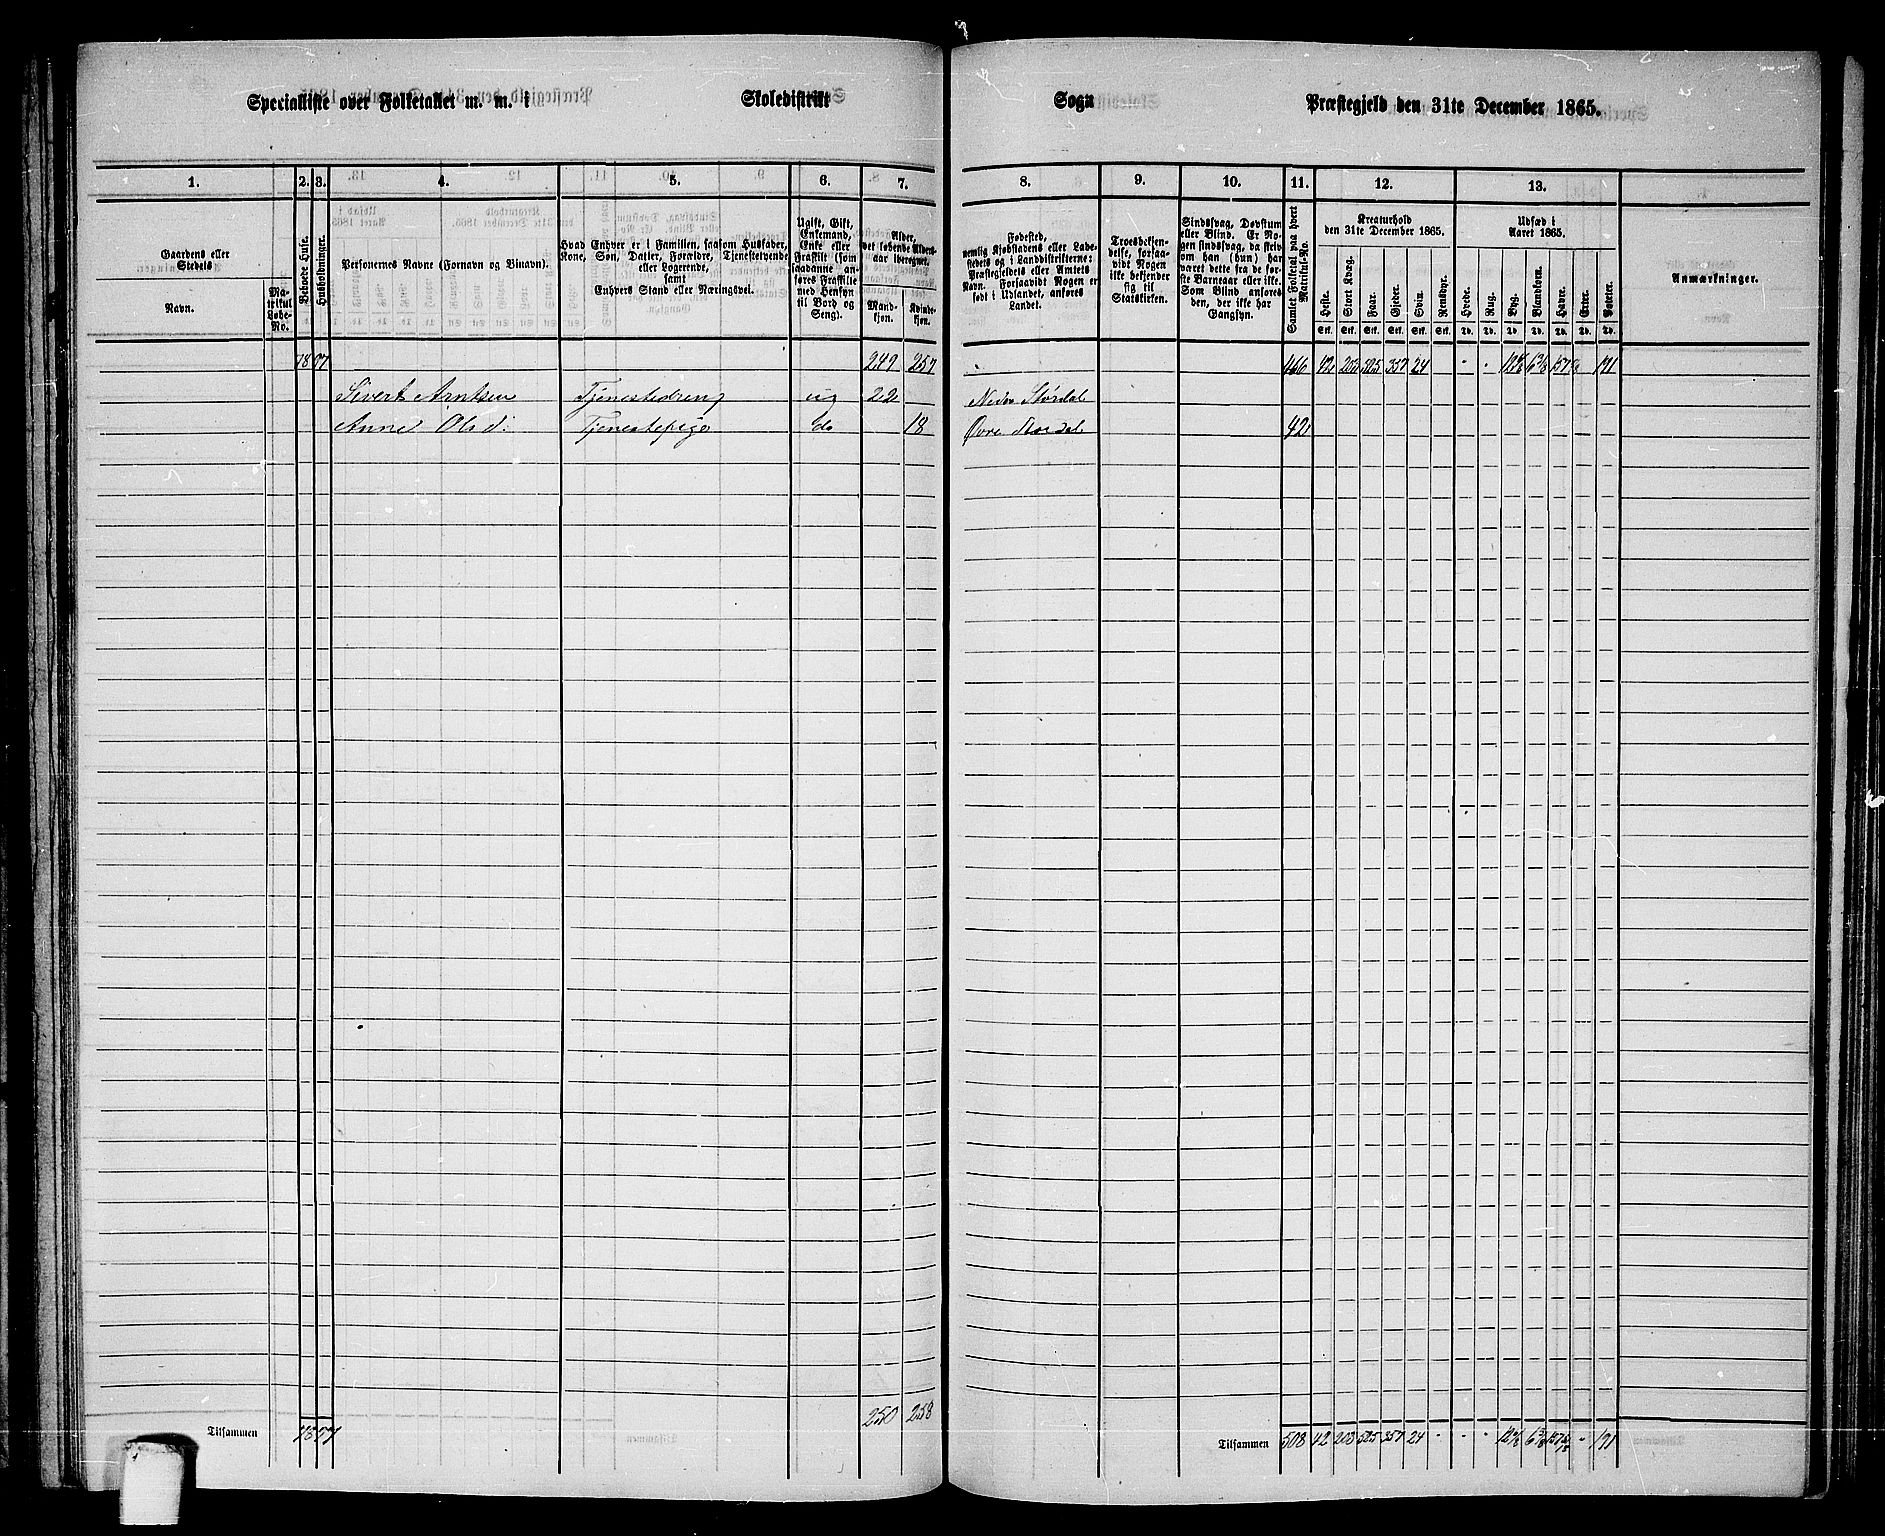 Specialliste over Folketallet m. m. i Skoledistrikt Sogn Præstegjeld den 31te December 1865.
1. 2. 3. 4. 5. 6. 7. 8. 9. 10. 11. 12. 13.
Gaardens eller Stedets
Navn.
Matrikul Løbe-No.
Beboede Huse.
Husholdninger.
Personernes Navne (Fornavn og Binavn).
Hvad Enhver er i Familien, saasom Husfader, Kone, Søn, Datter, Forældre, Tjenestetyende eller Logerende,
samt
Enhvers Stand eller Næringsvei.
Ugift, Gift, Enkemand, Enke eller Fraskilt (som saadanne anføres Fraskilte med Hensyn til Bord og Seng).
Alder, det løbende Alders-aar iberegnet.
Mandkjøn.
Kvindekjøn.
Fødested,
nemlig Kjøbstadens eller Ladestedets og i Landdistrikterne: Præstegjeldets eller Amtets Navn. Forsaavidt Nogen er født i Udlandet, anføres Landet.
Troesbekjendelse, forsaavidt Nogen ikke bekjender sig til Statskirken.
Sindssvag, Døvstum eller Blind. Er Nogen sindssvag, da skrives om han (hun) har været dette fra de første Barneaar eller ikke. Som Blind anføres den, der ikke har Gangsyn.
Samlet Folketal paa hvert Matrikul-No.
Kreaturhold
den 31te December 1865.
Heste. Stort Kvæg. Faar. Gjeder. Sviin. Rensdyr.
Stk. Stk. Stk. Stk. Stk. Stk.
Udsæd i
Aaret 1865.
Hvede. Rug. Byg. Blandkorn. Havre. Erter. Poteter.
Td. Td. Td. Td. Td. Td. Td.
Anmærkninger.
249 257 466 42 203 525 357 24 " " 191
Sivert Arntsen Tjenestedreng ug 22 Nedre Størdal
Anne Olsd. Tjenestepige do 18 Øvre Størdal 42
250 258
Tilsammen
Tilsammen 508 42 203 525 357 24 " " " 191